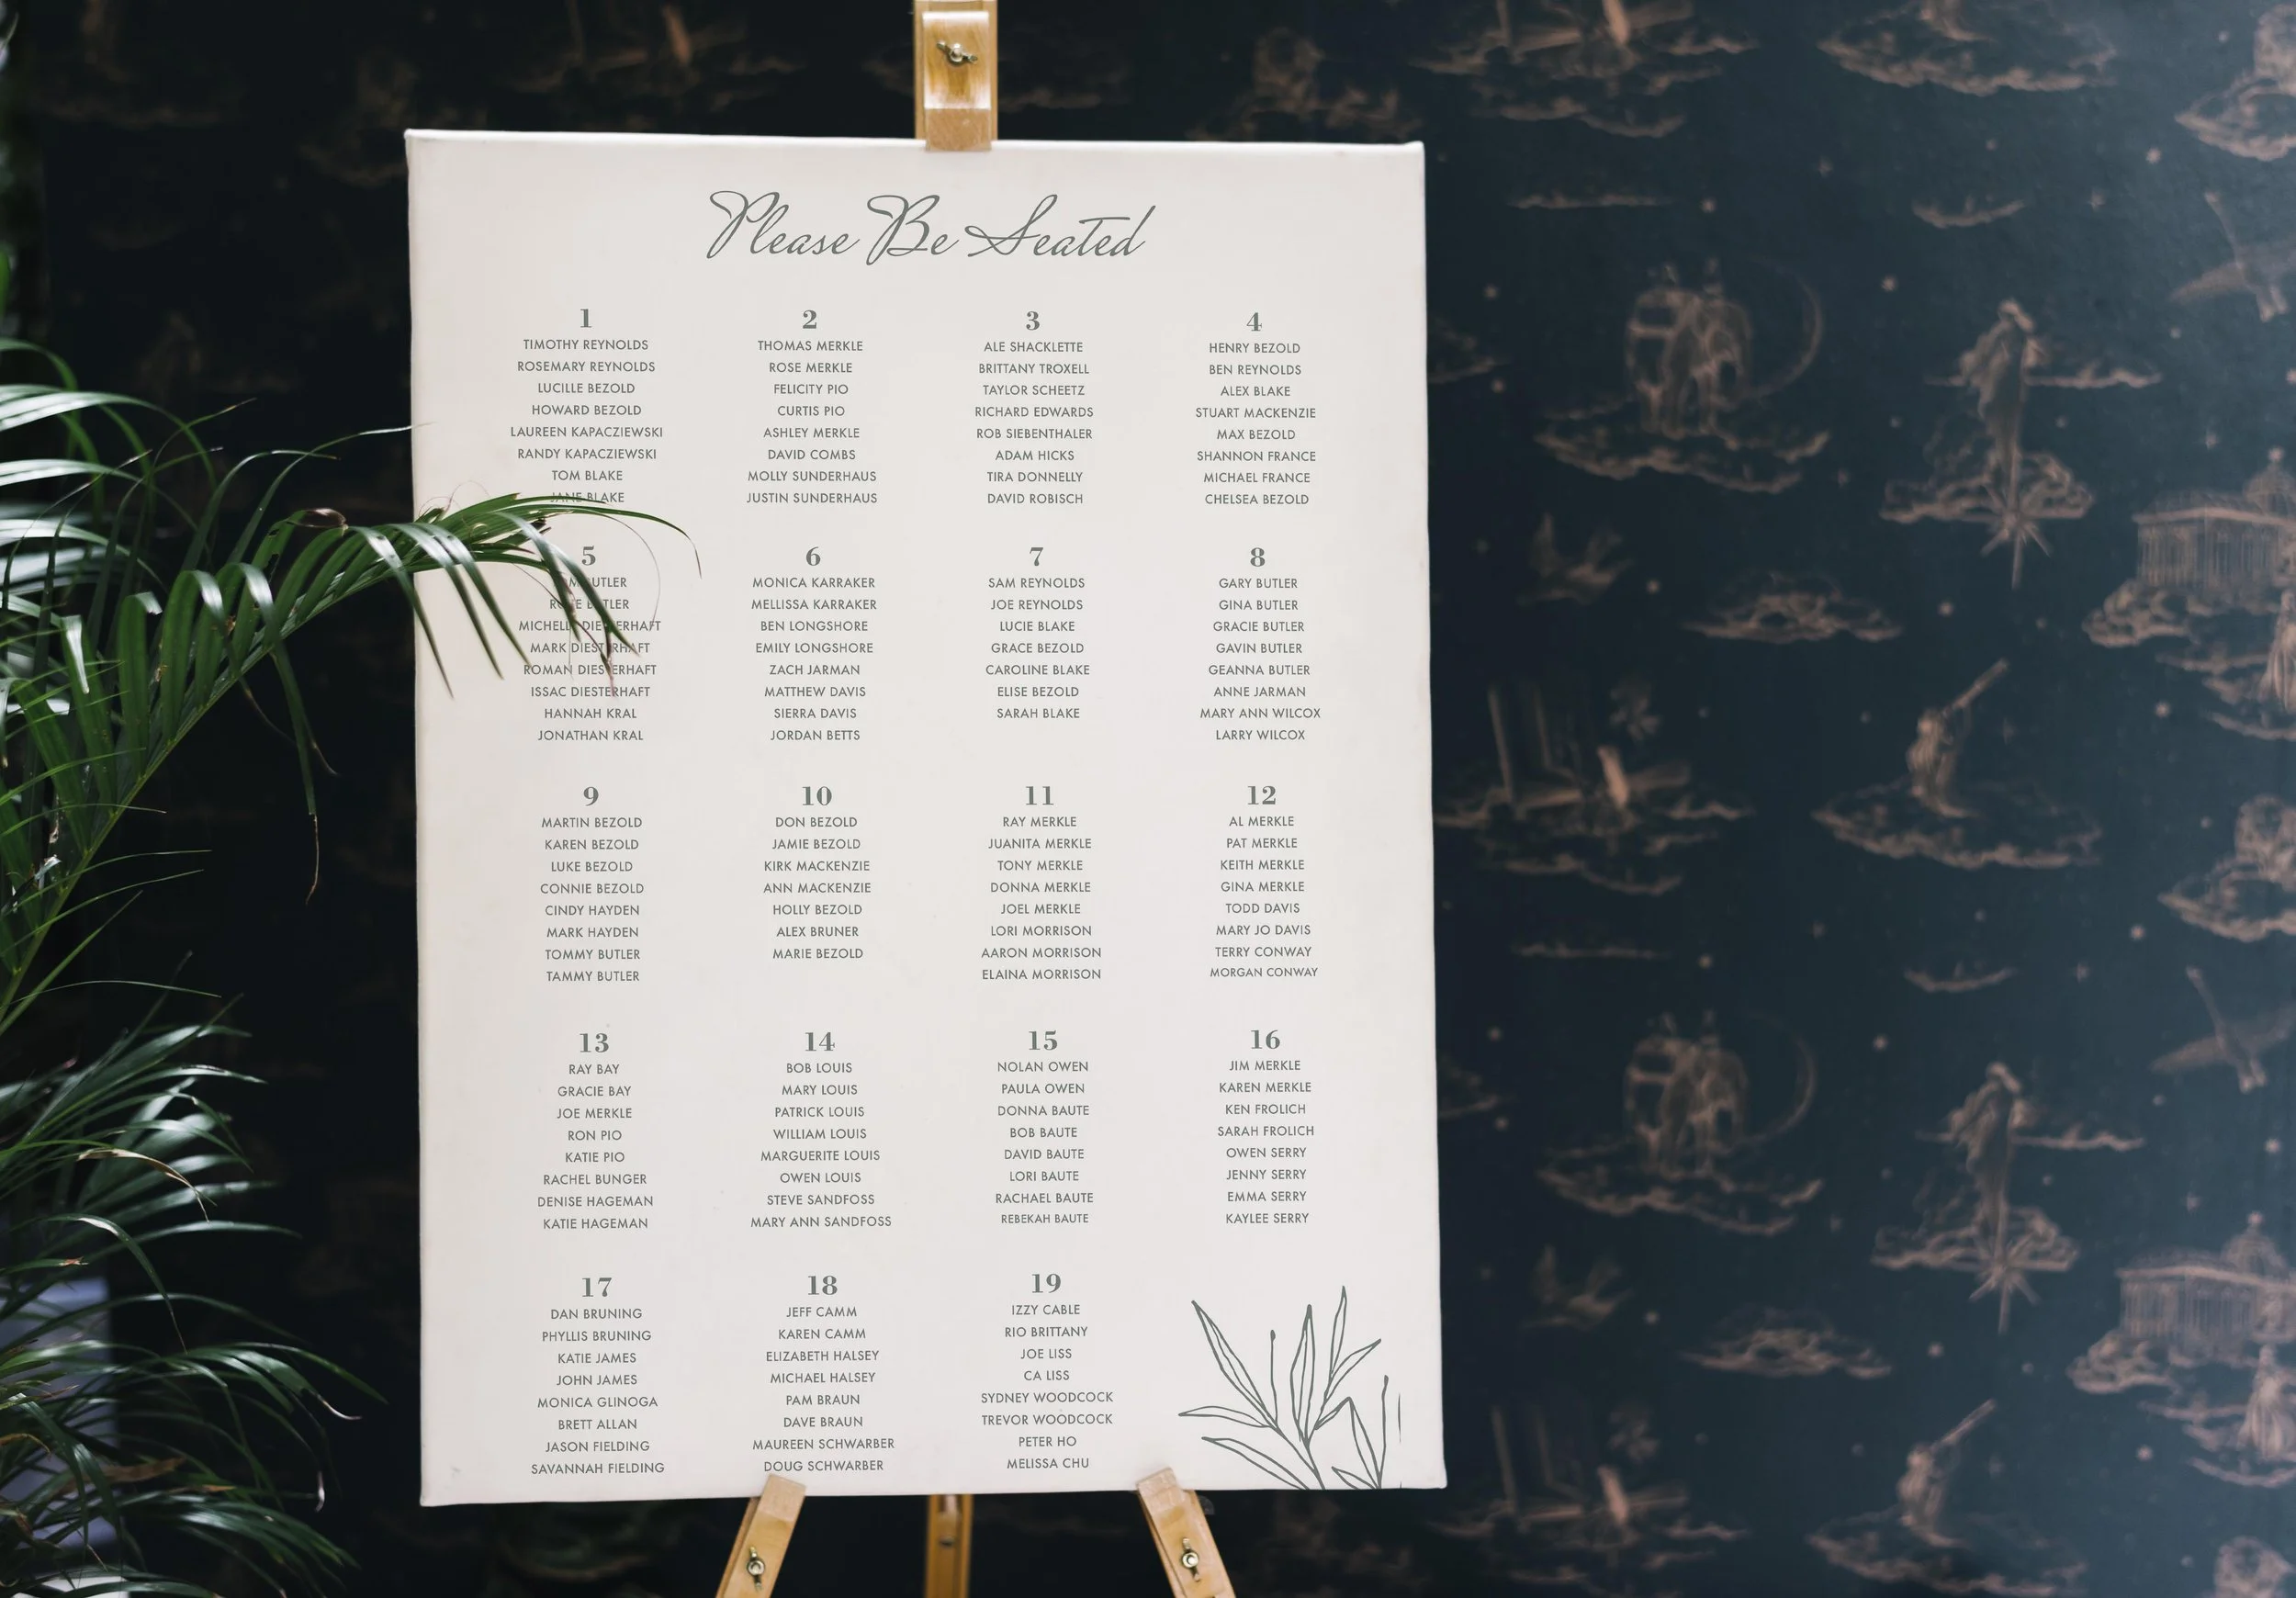 Please Be Seated
1
TIMOTHY REYNOLDS
ROSEMARY REYNOLDS
LUCILLE BEZOLD
HOWARD BEZOLD
LAUREEN KAPACZIEWSKI
RANDY KAPACZIEWSKI
TOM BLAKE
JANE BLAKE
2
THOMAS MERKLE
ROSE MERKLE
FELICITY PIO
CURTIS PIO
ASHLEY MERKLE
DAVID COMBS
MOLLY SUNDERHAUS
JUSTIN SUNDERHAUS
3
ALE SHACKLETTE
BRITTANY TROXELL
TAYLOR SCHEETZ
RICHARD EDWARDS
ROB SIEBENTHALER
ADAM HICKS
TIRA DONNELLY
DAVID ROBISCH
4
HENRY BEZOLD
BEN REYNOLDS
ALEX BLAKE
STUART MACKENZIE
MAX BEZOLD
SHANNON FRANCE
MICHAEL FRANCE
CHELSEA BEZOLD
5
BUTLER
BUTLER
MICHELLE DIESTERHAFT
MARK DIESTERHAFT
ROMAN DIESTERHAFT
ISSAC DIESTERHAFT
HANNAH KRAL
JONATHAN KRAL
6
MONICA KARRAKER
MELLISSA KARRAKER
BEN LONGSHORE
EMILY LONGSHORE
ZACH JARMAN
MATTHEW DAVIS
SIERRA DAVIS
JORDAN BETTS
7
SAM REYNOLDS
JOE REYNOLDS
LUCIE BLAKE
GRACE BEZOLD
CAROLINE BLAKE
ELISE BEZOLD
SARAH BLAKE
8
GARY BUTLER
GINA BUTLER
GRACIE BUTLER
GAVIN BUTLER
GEANNA BUTLER
ANNE JARMAN
MARY ANN WILCOX
LARRY WILCOX
9
MARTIN BEZOLD
KAREN BEZOLD
LUKE BEZOLD
CONNIE BEZOLD
CINDY HAYDEN
MARK HAYDEN
TOMMY BUTLER
TAMMY BUTLER
10
DON BEZOLD
JAMIE BEZOLD
KIRK MACKENZIE
ANN MACKENZIE
HOLLY BEZOLD
ALEX BRUNER
MARIE BEZOLD
11
RAY MERKLE
JUANITA MERKLE
TONY MERKLE
DONNA MERKLE
JOEL MERKLE
LORI MORRISON
AARON MORRISON
ELAINA MORRISON
12
AL MERKLE
PAT MERKLE
KEITH MERKLE
GINA MERKLE
TODD DAVIS
MARY JO DAVIS
TERRY CONWAY
MORGAN CONWAY
13
RAY BAY
GRACIE BAY
JOE MERKLE
RON PIO
KATIE PIO
RACHEL BUNGER
DENISE HAGEMAN
KATIE HAGEMAN
14
BOB LOUIS
MARY LOUIS
PATRICK LOUIS
WILLIAM LOUIS
MARGUERITE LOUIS
OWEN LOUIS
STEVE SANDFOSS
MARY ANN SANDFOSS
15
NOLAN OWEN
PAULA OWEN
DONNA BAUTE
BOB BAUTE
DAVID BAUTE
LORI BAUTE
RACHAEL BAUTE
REBEKAH BAUTE
16
JIM MERKLE
KAREN MERKLE
KEN FROLICH
SARAH FROLICH
OWEN SERRY
JENNY SERRY
EMMA SERRY
KAYLEE SERRY
17
DAN BRUNING
PHYLLIS BRUNING
KATIE JAMES
JOHN JAMES
MONICA GLINOGA
BRETT ALLAN
JASON FIELDING
SAVANNAH FIELDING
18
JEFF CAMM
KAREN CAMM
ELIZABETH HALSEY
MICHAEL HALSEY
PAM BRAUN
DAVE BRAUN
MAUREEN SCHWARBER
DOUG SCHWARBER
19
IZZY CABLE
RIO BRITTANY
JOE LISS
CA LISS
SYDNEY WOODCOCK
TREVOR WOODCOCK
PETER HO
MELISSA CHU